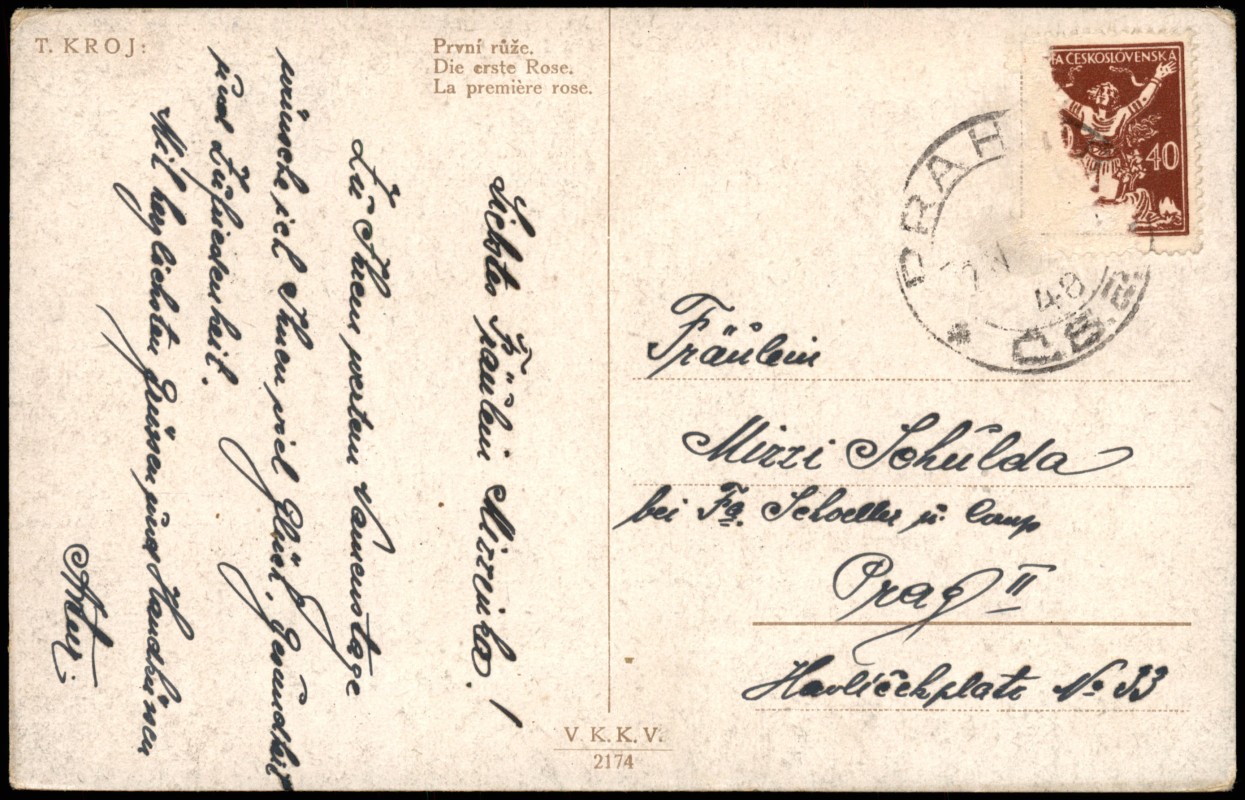 T. KROJ:
První růže.
Die erste Rose.
La première rose.
Liebstes Fräulein Mizzinka!
Zu Ihrem werten Namenstage
wünsche ich Ihnen viel Glück, Gesundheit
und Zufriedenheit.
Mit herzlichsten Grüssen und Handküssen
TA ČESKOSLOVENSKA
40
PRAHA
48
ČSR
Fräulein
Mizzi Schulda
bei Fa. Schoeller u. Comp
Prag II
Havlíčekplatz No 33
V. K. K. V.
2174